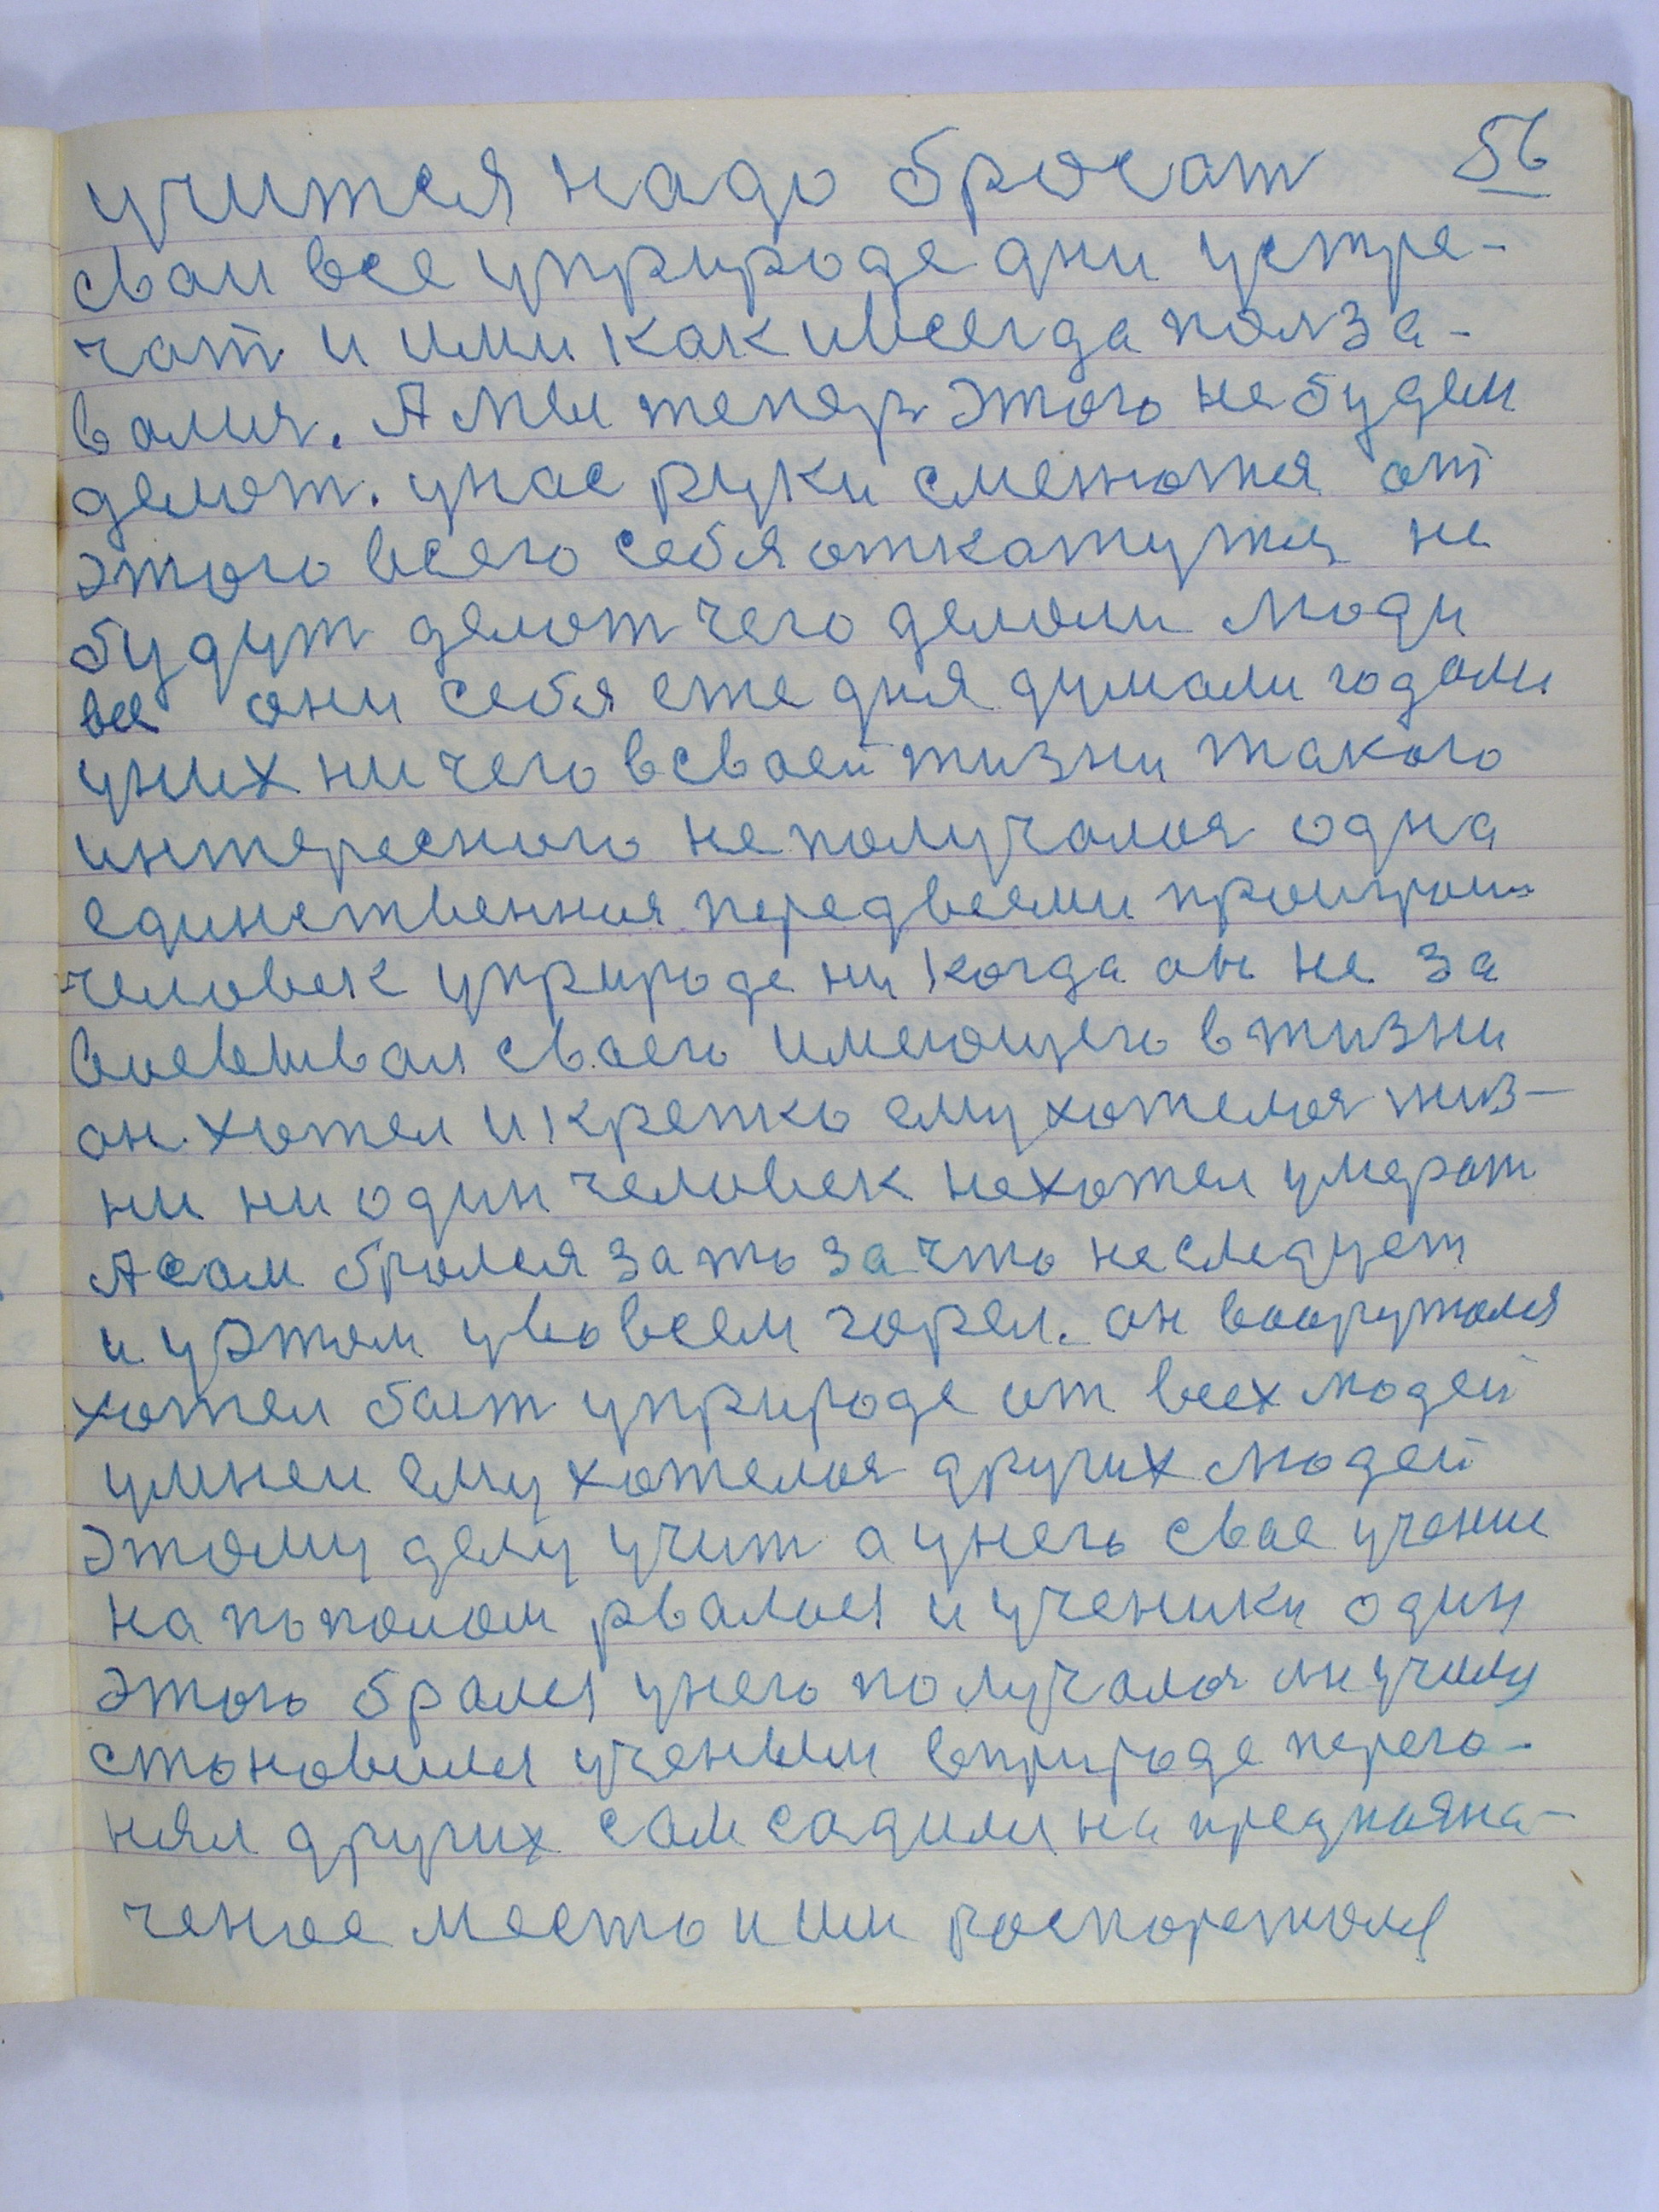 56
учится надо бросат
сваи все уприроде дни устре-
чат и ими как ивсегда полза-
валис. А мы тепер этого небудем
делат. унас руки смежются от
этого всего себя откажутся не
будут делат чего делали люди
все они себя еже дня думали годами
уних ни чего всваей жизни такого
интересного неполучалося одна
единственная передвсеми проиграш
человек уприроде ни когда он не за
воевывал своего имеющего вжизни
он хотел икрепко ему хотелося жиз-
ни ни один человек нехотел умерат
А сам брался зато за что неследует
и уэтом уво всем горел. он вооружался
хотел быт уприроде от всех людей
умнеи ему хотелося других людей
этому делу учит а унего свае учение
на пополам рвалося и ученики один
этого брался унего получалося
становился ученым вприроде перего-
нял других сам садился на предназна-
ченое место и им распорежался